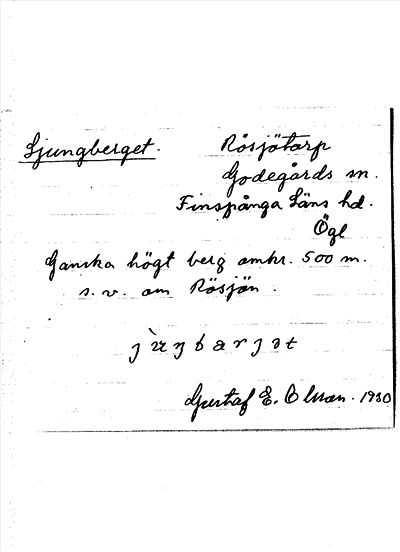 Ljungberget.
Rösjötorp
Godegårds sn.
Finspånga Läns hd.
Ögl
Ganska högt berg omkr. 500 m.
s. v. om Rösjön.
Gustaf E. Olsson. 1930